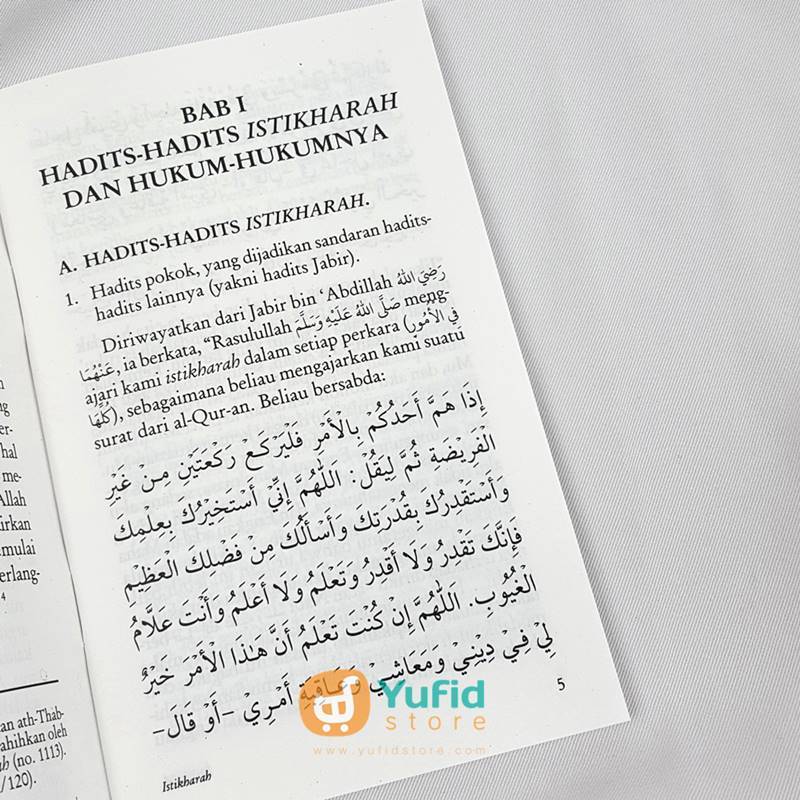 BAB I
HADITS-HADITS ISTIKHARAH
DAN HUKUM-HUKUMNYA
A. HADITS-HADITS ISTIKHARAH.
1. Hadits pokok, yang dijadikan sandaran hadits-
hadits lainnya (yakni hadits Jabir).
Diriwayatkan dari Jabir bin ‘Abdillah رَضِيَ اللهُ
عَنْهُمَا, ia berkata, “Rasulullah صَلَّى اللهُ عَلَيْهِ وَسَلَّمَ meng-
ajari kami istikharah dalam setiap perkara (فِي الْأُمُورِ
كُلِّهَا), sebagaimana beliau mengajarkan kami suatu
surat dari al-Qur-an. Beliau bersabda:
إِذَا هَمَّ أَحَدُكُمْ بِالْأَمْرِ فَلْيَرْكَعْ رَكْعَتَيْنِ مِنْ غَيْرِ
الْفَرِيْضَةِ ثُمَّ لِيَقُلْ: اَللّٰهُمَّ إِنِّيْ أَسْتَخِيْرُكَ بِعِلْمِكَ
وَأَسْتَقْدِرُكَ بِقُدْرَتِكَ وَأَسْأَلُكَ مِنْ فَضْلِكَ الْعَظِيْمِ
فَإِنَّكَ تَقْدِرُ وَلَا أَقْدِرُ وَتَعْلَمُ وَلَا أَعْلَمُ وَأَنْتَ عَلَّامُ
الْغُيُوْبِ. اَللّٰهُمَّ إِنْ كُنْتَ تَعْلَمُ أَنَّ هٰذَا الْأَمْرَ خَيْرٌ
لِيْ فِيْ دِيْنِيْ وَمَعَاشِيْ وَعَاقِبَةِ أَمْرِيْ -أَوْ قَالَ-
5
Istikharah
ng
er-
hal
me-
Allah
irkan
mulai
erlang-
4
an ath-Thab-
ahihkan oleh
(no. 1113).
/120).
Yufid
store
www.yufidstore.com